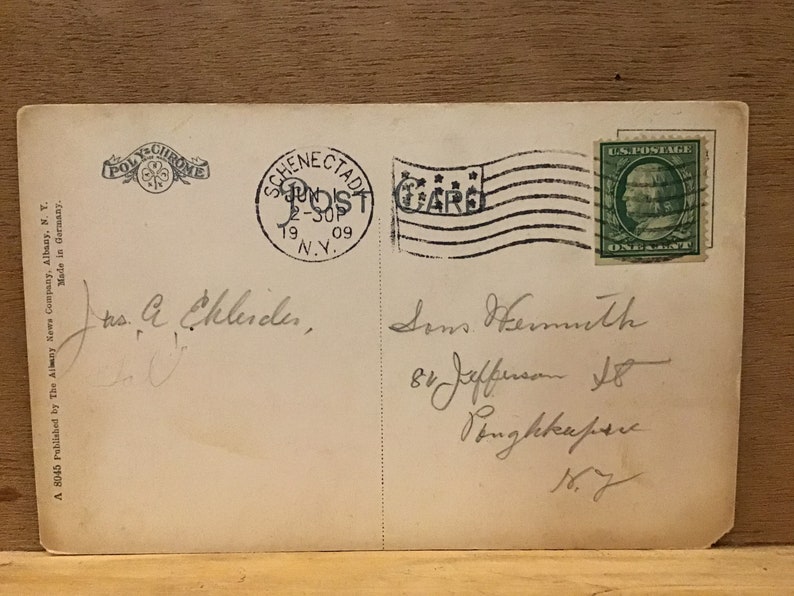 POLY-CHROME
POST CARD
SCHENECTADY
JUN
2-30P
19 09
N.Y.
U.S. POSTAGE
ONE CENT
A 8045 Published by The Albany News Company, Albany, N. Y.
Made in Germany.
Jas. A.
Wermuth
82 Jefferson St
Poughkeepsie
N.Y